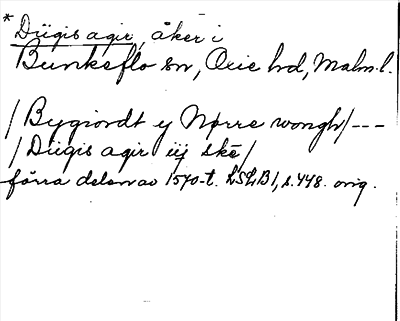 * Diigis agir, åker i
Bunkeflo sn, Oxie hd, Malm. l.
/Bygiordt y Nørre wongh/---
/Diigis agir iij skē/
förra delen av 1570-t. LSLB1, s. 448. orig.